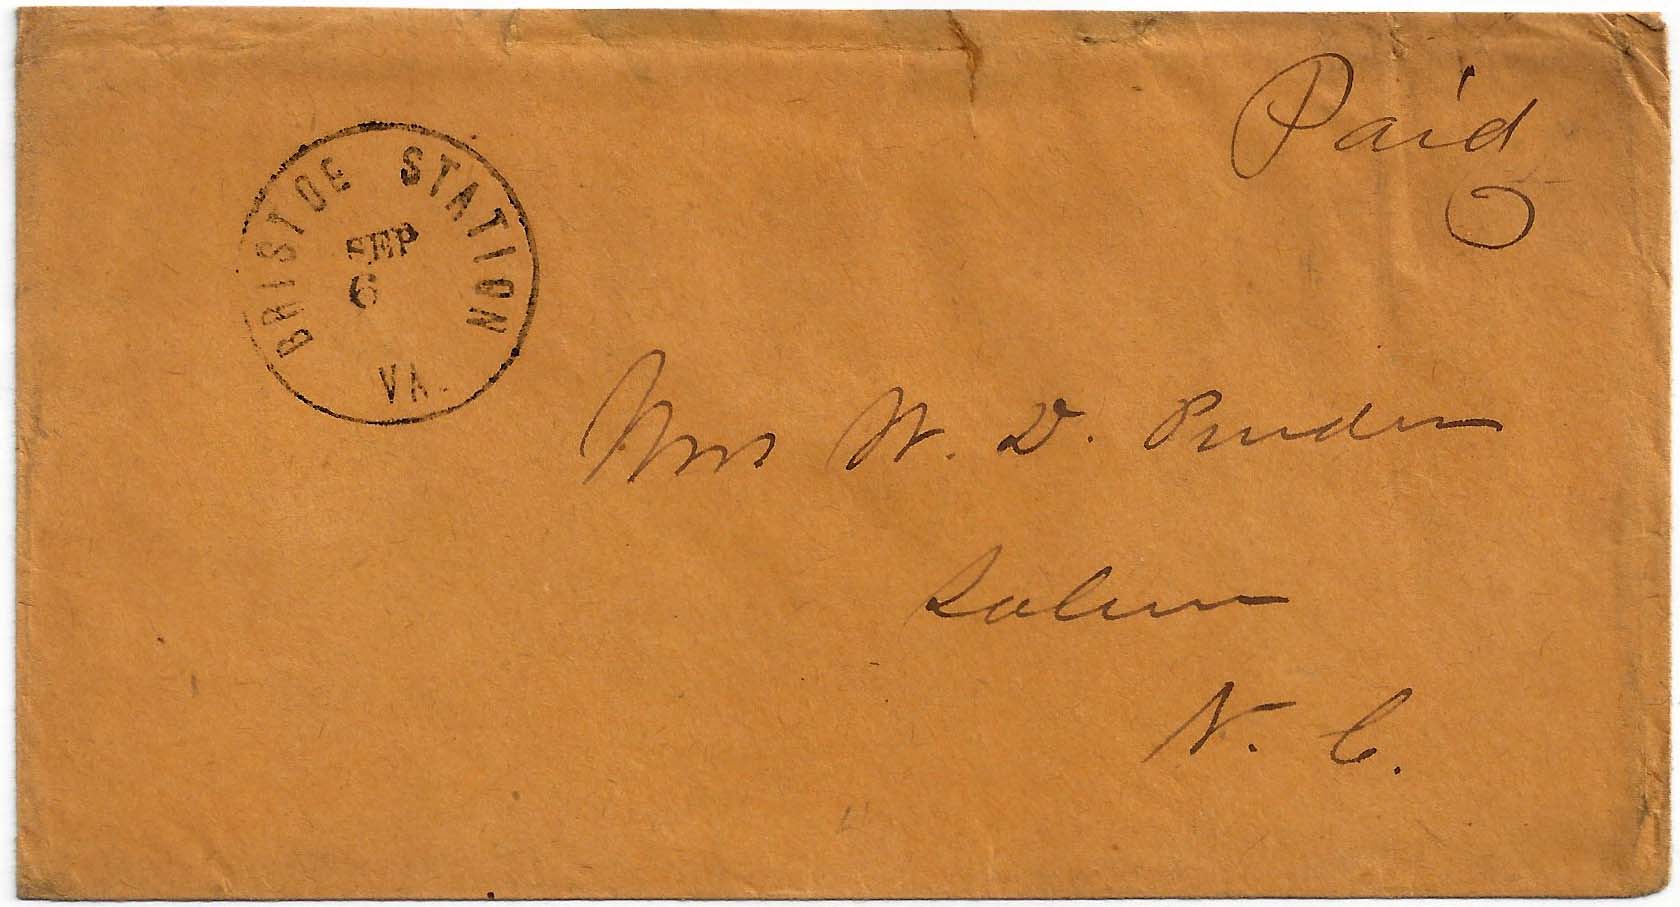 BRISTOE STATION
SEP
6
VA.
Paid
5
Mrs W. D. Pruden
Salem
N. C.